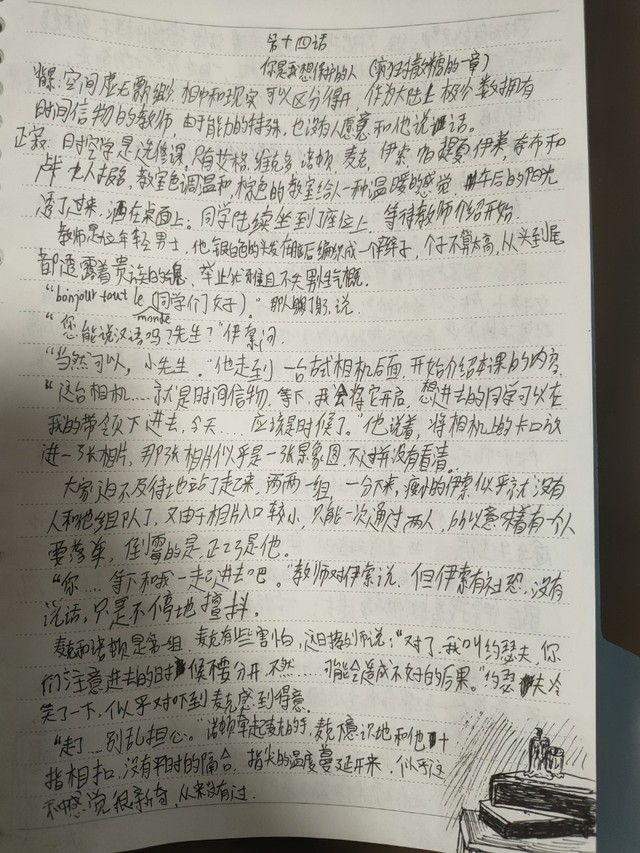 第十四话
你是我想保护的人（疯子对散糖的一章）
背景：空间虚无飘渺 相中和现实可以区分得开，作为大陆上极少数拥有
时间信物的教师，由于能力的特殊，也没有人愿意和他说过话。
正叙：时空学是选修课，只有艾格，维克多 诺顿，麦克，伊索 帕提夏 伊莱，奈布和
卢卡 九人报名，教室色调温和 棕色的教室给人一种温暖的感觉 午后的阳光
透了过来，洒在桌面上。同学陆续坐到了座位上，等待教师介绍开始
教师是位年轻男士，他银白色的头发在脑后编织成一个辫子，个子不算太高，从头到尾
都透露着贵族的 ，举止优雅且不失男性气概。
“bonjour tout le monde（同学们好）。”那人鞠了躬，说
“您能说汉语吗？先生？”伊索问
“当然可以，小先生。”他走到一台古式相机后面，开始介绍本课的内容
“这台相机……就是时间信物，等下，我会将它开启，想进去的同学可以在
我的带领下进去，今天……应该是时候了。”他说着，将相机上的卡口放
进一张相片，那张相片似乎是一张景象图，不过并没有看清。
大家迫不及待地站了起来，两两一组，一分下来，瘦小的伊索似乎就没有
人和他组队了，又由于相片入口较小，只能一次通过两人，所以意味着有一个人
要落单，倒霉的是，正巧是他。
“你……等下和我一起进去吧。”教师对伊索说，但伊索有社恐，没有
说话，只是不停地颤抖。
麦克和诺顿是第一组，麦克有些害怕，这时教师说：“对了，我叫约瑟夫，你
们注意进去的时候不要分开，不然……可能会造成不好的后果。”约瑟夫冷
笑了一下，似乎对吓到麦克感到得意。
“走了……别乱担心。”诺顿牵起麦克的手，麦克下意识地和他十
指相扣，没有平时的隔合，指尖的温度蔓延开来，似乎这
种感觉很新奇，从来没有过.